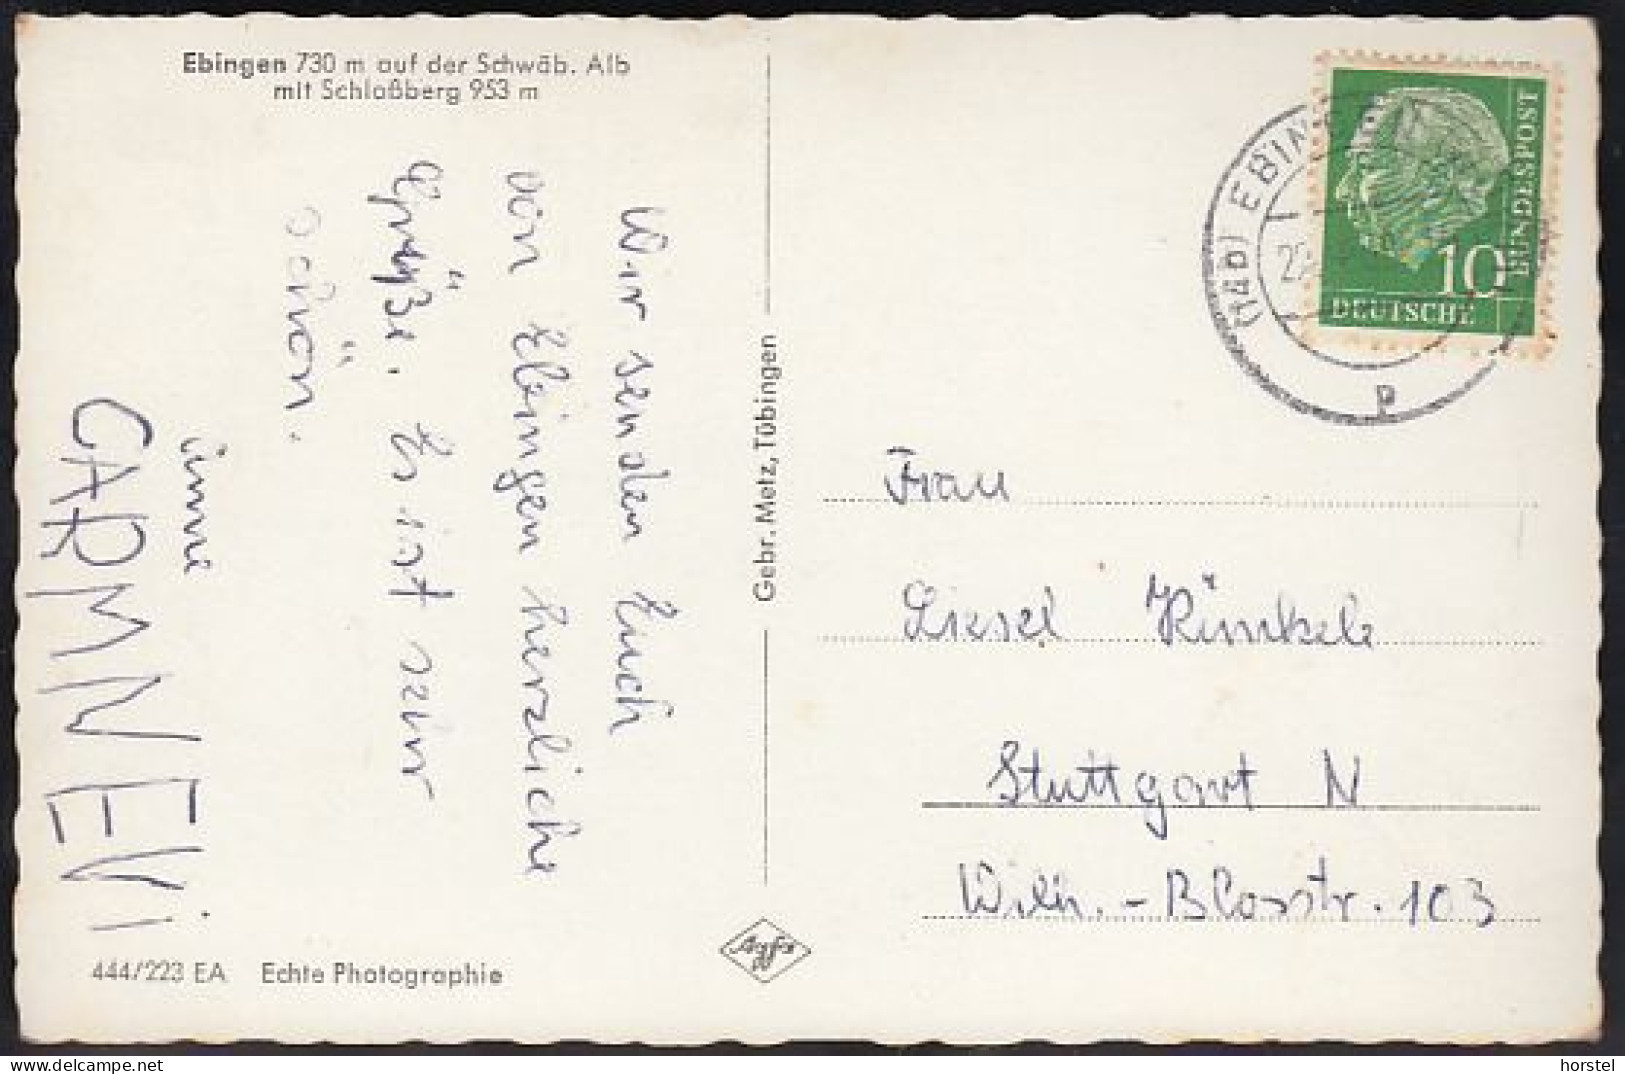 Ebingen 730 m auf der Schwäb. Alb
mit Schloßberg 953 m
Wir senden Euch
von Ebingen herzliche
Grüße. Es ist sehr
schön.
CARMNEVi
Gebr. Metz, Tübingen
444/223 EA Echte Photographie
Agfa
(14b) EBINGEN
22.
P
10
DEUTSCHE
BUNDESPOST
Frau
Liesel Künkele
Stuttgart N
Wilh. - Blosstr. 103
horstel
delcampe.net